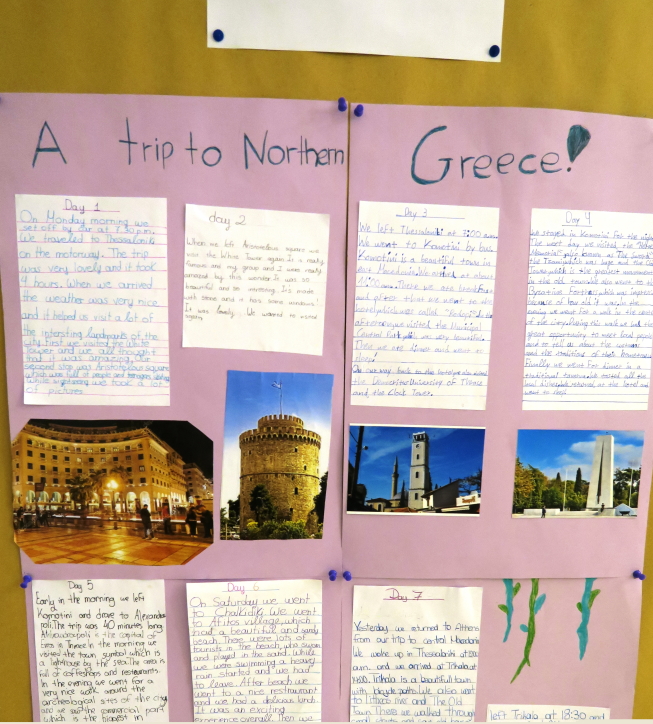 A trip to Northern
Greece!
Day 1
On Monday morning we
set off by car at 7:30 p.m.
We travelled to Thessaloniki
on the motorway. The trip
was very lovely and it took
9 hours. When we arrived
the weather was very nice
and it helped us visit a lot of
the intersting landmarks of the
city. First we visited the White
Tower and we all thought
that it was amazing. Our
second stop was Aristotelous square
which was full of people and
While we took a lot
of pictures
day 2
When we left Aristotelous square we
visit the White Tower again. Is a really
famous and my group and I were really
amazed by this wonder. It was so
beautiful and so intresting. It's made
with stone and it has some windows.
It was lovely. We wanted to visit
again
Day 3
We left Thessaloniki at 7:00 a.m.
We went to Komotini by bus.
Komotini is a beautiful town in
East Macedonia. We at about
There we ate breakfast
and after that we went to the
hotel which was called
afternoon we visited the Municipal
Central Park. was very beautiful.
There we ate dinner and went to
sleep!
On our way back to the hotel we also visited
the Democritus University of Thrace
and the Clock Tower.
Day 4
We stayed in Komotini for the night
The next day we visited the
also known as
the was huge and the
Tower which is the greatest monument
in the old town. We also went to the
Byzantine Fortress which was
because of how old it was. In the
evening we went for a walk in the centre
of the city. During this walk we had the
great opportunity to meet local people
and to tell us about the
and the traditions of their hometown
Finally we went for dinner in a
traditional tavern. We tasted all the
local dishes. We returned at the hotel and
went to sleep
Day 5
Early in the morning we left
Komotini and drove to Alexandrou
poli. The trip was 40 minutes long.
Alexandroupoli is the capital of
Evros in Thrace. In the morning we
visited the town symbol which is
a lighthouse by the sea. The area is
full of coffeshops and restaurants.
In the evening we went for a
very nice walk around the
archeological sites of the city
and we visit the commercial port
which is the biggest in
Day 6
On Saturday we went
to Chalkidiki. We went
to Afitos village, which
had a beautiful and sandy
beach. There were lots of
tourists in the beach, who swam
and played in the sand. While
we were swimming a heavy
rain started and we had
to leave. After beach we
went to a nice restaurant
and we had a delicious lunch.
It was an exciting
experience overall. Then we
Day 7
Yesterday we returned to Athens
from our trip to central Macedonia
We woke up in Thessaloniki at
a.m. and we arrived at Trikala at
Trikala is a beautiful town
with bicycle paths. We also went
to Litheos river and The Old
Town. There we walked through
left Trikala at 18:30 and